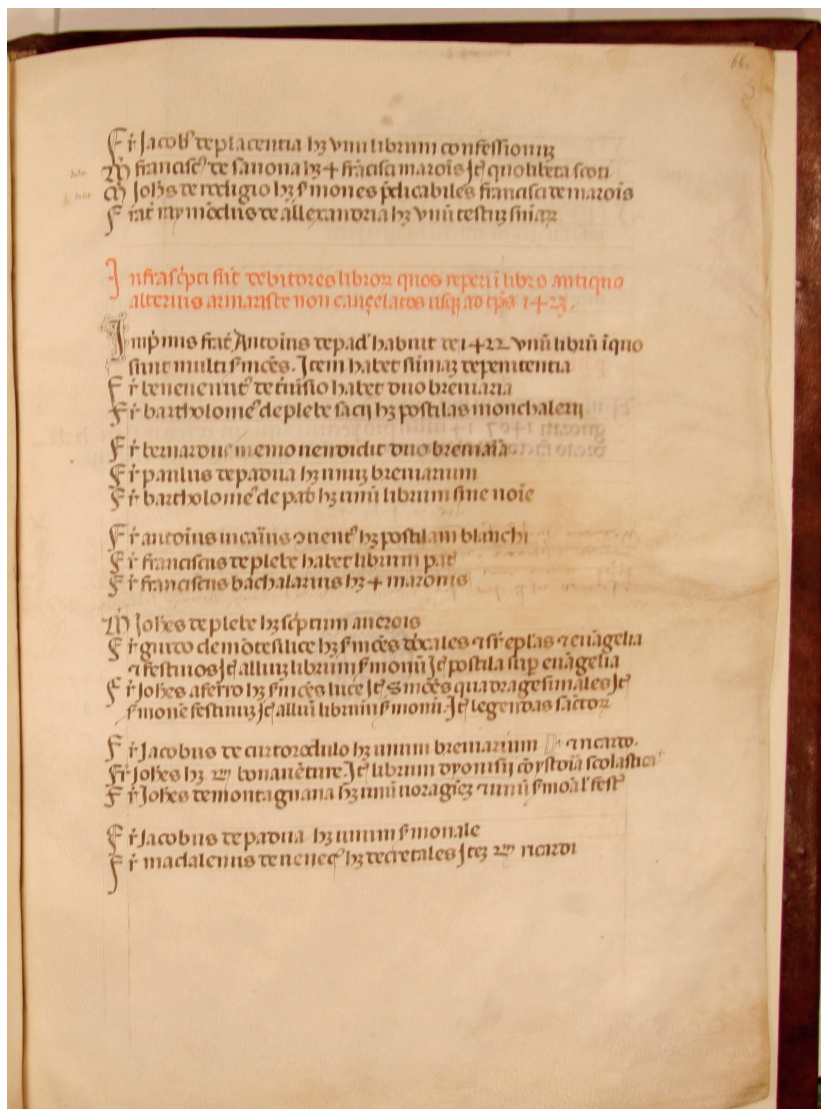 66.
Fr Jacob' de placentia hʒ vnū librum confessionuʒ
M francisc' de sauona hʒ 4 frācisci marōis Jtʒ quolibeta scoti
M Johēs de redigio hʒ s'mones p̄dicabiles francisci de marōis
Frat' raymōdus de allexandria hʒ vnū testuʒ sniaꝝ
Infrasc'pti sūt debitores libroꝝ quos reperi ī libro antiquo
alterius armariste non cançelatos usqʒ ad tp̄s 1423.
Imp'mis frat' Antoīus de pad' habuit de 1422 vnū librū ī quo
sunt multi s'mōes. Jtem habet sūmaʒ de penitentia
Fr beneuenut' de t'uisio habet duo breuiaria
Fr bartholome' de plebe sacij hʒ postilas monchalerij
Fr bernardus memo uendidit duo breuiaīa
Fr paulus de padua hʒ unuʒ breuiarium
Fr bartholome' de pad' hʒ unū librum sine noīe
Fr antoīus uicaīus ɔuent' hʒ postilam blanchi
Fr franciscus de plebe habet librum pat'
Fr franciscus bachalarius hʒ 4 maronis
M Johēs de plebe hʒ sc'ptum auerois
Fr guido de mōtesilice hʒ s'mōes dōcales ⁊ sr̄ ep̄las ⁊ euāgelia
⁊ festiuos Jtʒ alliuʒ librum s'monū Jtʒ postila sup euāgelia
Fr Johēs a ferro hʒ s'mōes luce Jtʒ s'mōes quadragesimales Jtʒ
s'mone festiuuʒ Jtʒ alliū librum s'monū. Jtʒ legendas sāctoꝝ
Fr Jacobus de curtorodulo hʒ unum breuiarium
Fr Johēs hʒ 2m bonauēture. Jtʒ librum dyonisij ⁊ ystoīa scolastica
Fr Johēs de montagnana hʒ unū uoragīeʒ ⁊ unū s'moāl' fest'
Fr Jacobus de padua hʒ unum s'monale
Fr madalenus de uenec' hʒ decretales Jteʒ 2m ricardi